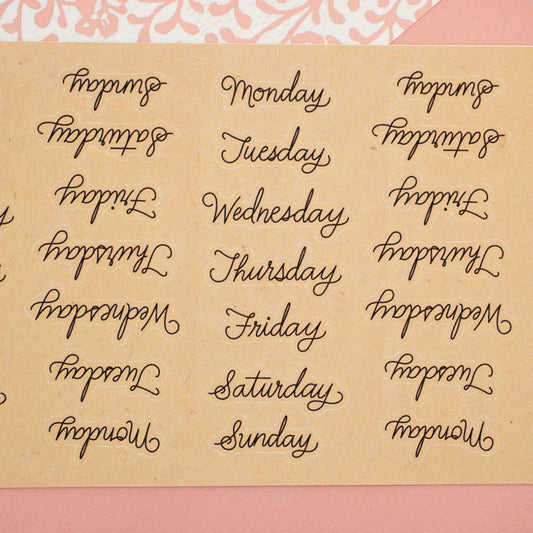 Monday
Tuesday
Wednesday
Thursday
Friday
Saturday
Sunday
Monday
Tuesday
Wednesday
Thursday
Friday
Saturday
Sunday
Monday
Tuesday
Wednesday
Thursday
Friday
Saturday
Sunday